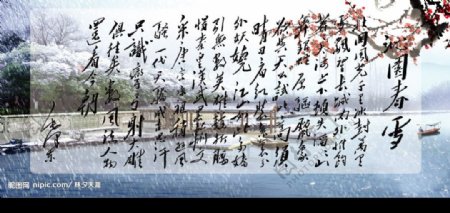 沁园春 雪
北国风光千里冰封万里
雪飘望长城内外惟馀
莽莽大河上下顿失滔滔山
舞银蛇原驰腊象
欲与天公试比高须
晴日看红装素裹分
外妖娆江山如此多娇
引无数英雄竞折腰
惜秦皇汉武略输文
采唐宗宋祖稍逊风
骚一代天骄成吉思汗
只识弯弓射大雕
俱往矣数风流人物
还看今朝
毛泽东
昵图网 nipic.com /